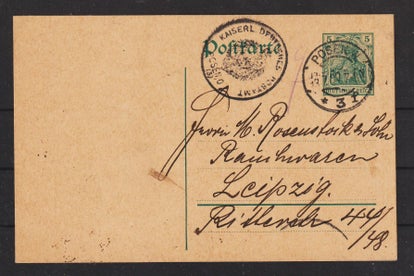 5 5
Postkarte
KAISERL. DEUTSCHES POSTAMT
POSEN
* 3 f
Herrn M. Rosenstock & Sohn
Rauchwaren
Leipzig.
Ritterstr 44/
48.